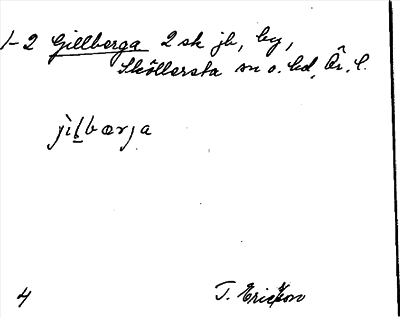 1-2 Gillberga 2 sk jb, by,
Sköllersta sn o. hd, Ör. l.
jìlbærja
4 T. Ericsson